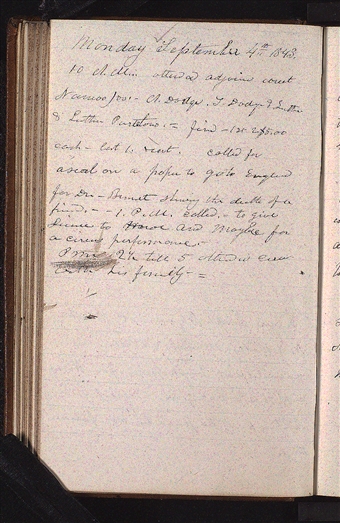 Monday September 4th 1843.
10 A.M. attend adjoin court
Nauvoo / vs - A. Dodge, J. Dodge & Luther
& Luther Purtelow. = fined
cash - but to rent. called for
a seal on a paper to go to England
for Dr - Bennet showing the death of a
friend. - - 1. P.M. called. - to give
license to Howe and Mayble for
a circus performance. -
P M 2 1/2 till 5 attended circus
with his family - =